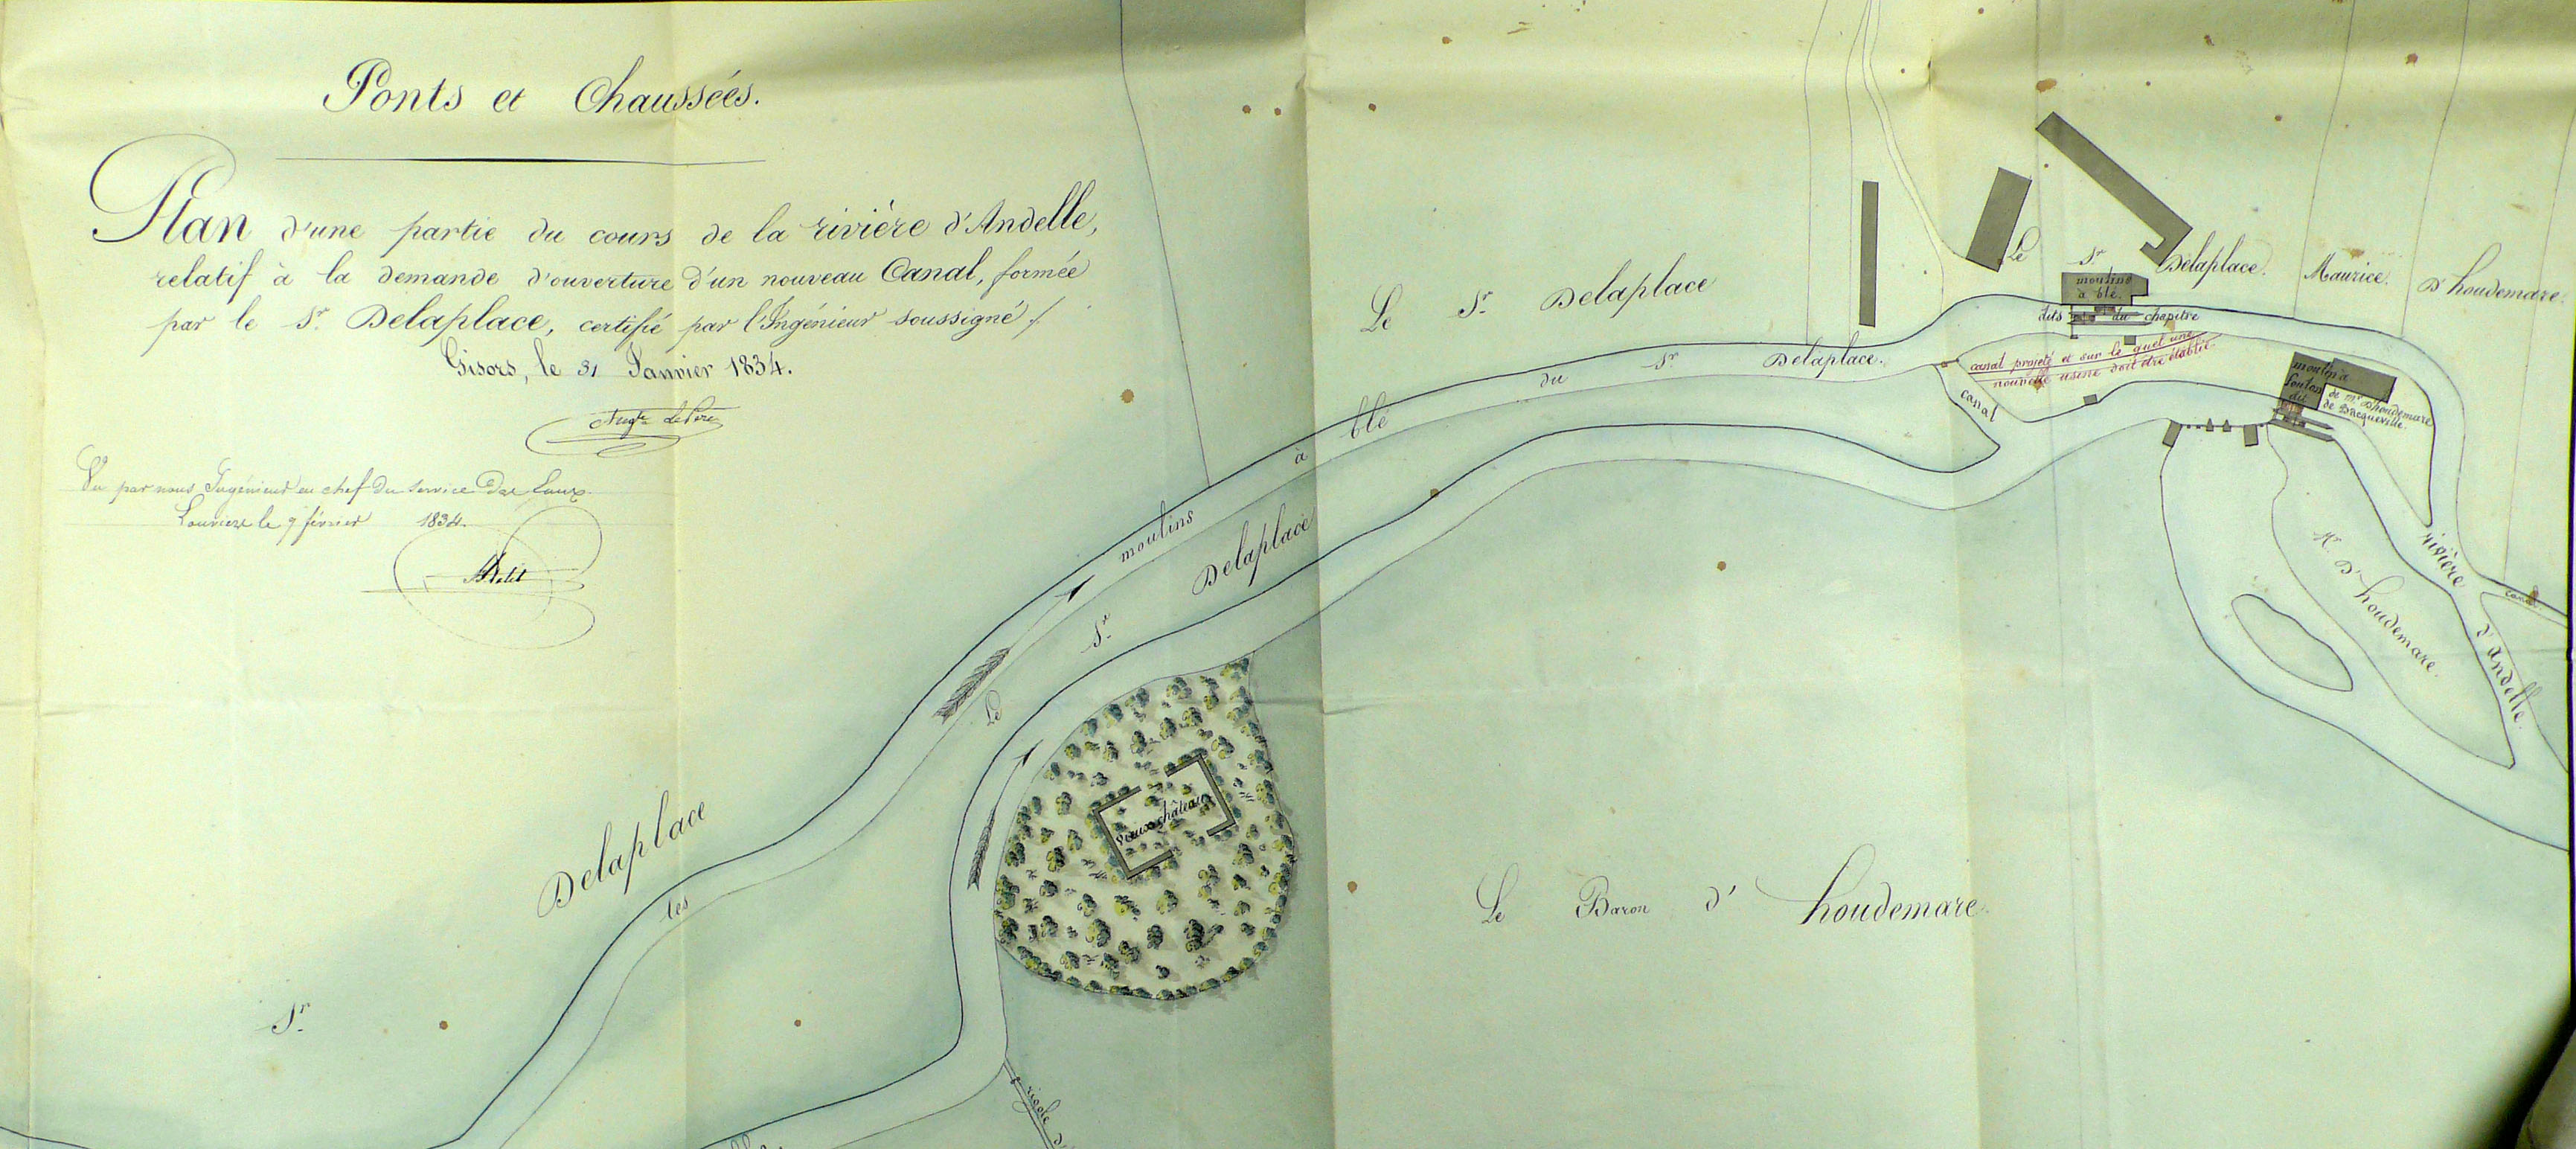 Ponts et Chaussées.
Plan d'une partie du cours de la rivière d'Andelle,
relatif à la demande d'ouverture d'un nouveau Canal, formée
par le Sr. Delaplace, certifié par l'Ingénieur soussigné ./.
Gisors, le 31 Janvier 1834.
Vu par nous Ingénieur en chef du service des Eaux
Louviers le 9 février 1834.
Petit
Le Sr. Delaplace
Le Sr. Delaplace.
Maurice.
D'houdemare.
moulins
à blé.
dits du chapitre
canal projeté et sur le quel une
nouvelle usine doit être établie
moulin à
foulon
dit
de Mr. D'houdemare
de Bacqueville.
canal
les moulins à blé du Sr. Delaplace.
Le Sr. Delaplace
Sr. Delaplace
vieux château
Le Baron d'houdemare.
Mr. D'houdemare.
rivière d'Andelle.
canal
rigole d'